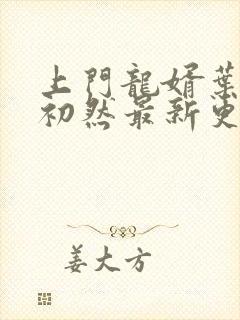 上門龍婿葉
初然最新更
姜大方